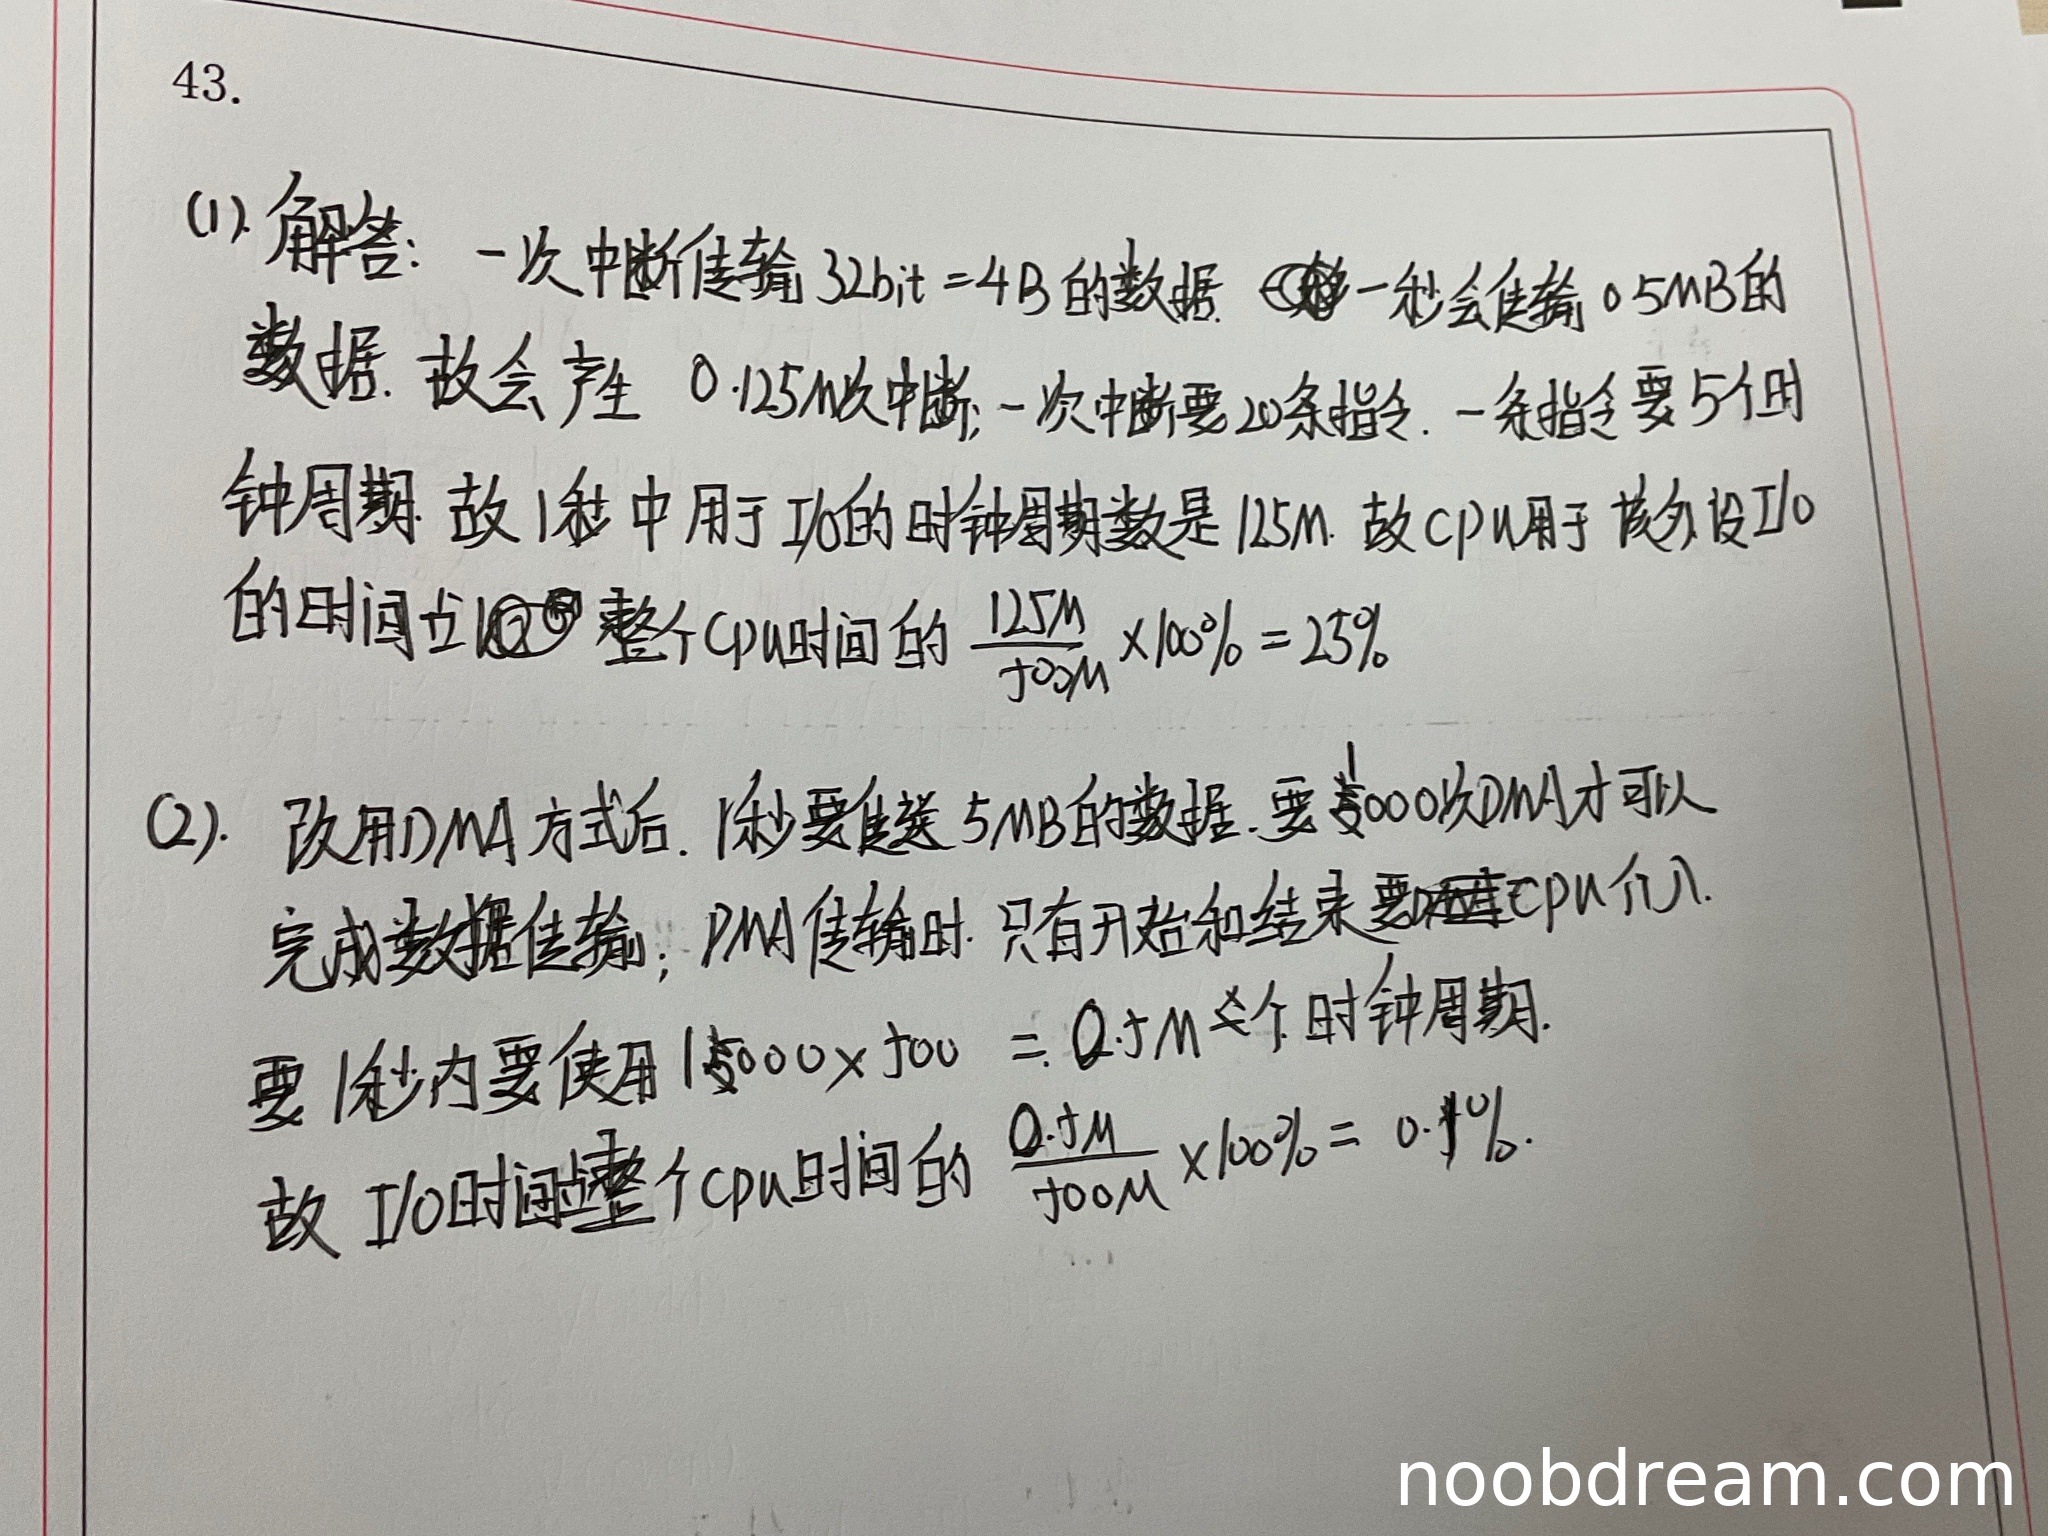 43.
(1). 解答: 一次中断传输 32bit = 4B 的数据. 一秒会传输 0.5MB的
数据. 故会产生 0.125M次中断; 一次中断要20条指令. 一条指令要5个时
钟周期. 故1秒中用于I/O的时钟周期数是125M. 故CPU用于该外设I/O
的时间占 整个CPU时间的 125M/500M ×100% = 25%
(2). 改用DMA方式后. 1秒要传送5MB的数据. 要1000次DMA才可以
完成数据传输; DMA传输时. 只有开始和结束要CPU介入.
要1秒内要使用1000×500 = 0.5M个时钟周期.
故I/O时间占整个CPU时间的 0.5M/500M ×100% = 0.1%.
noobdream.com